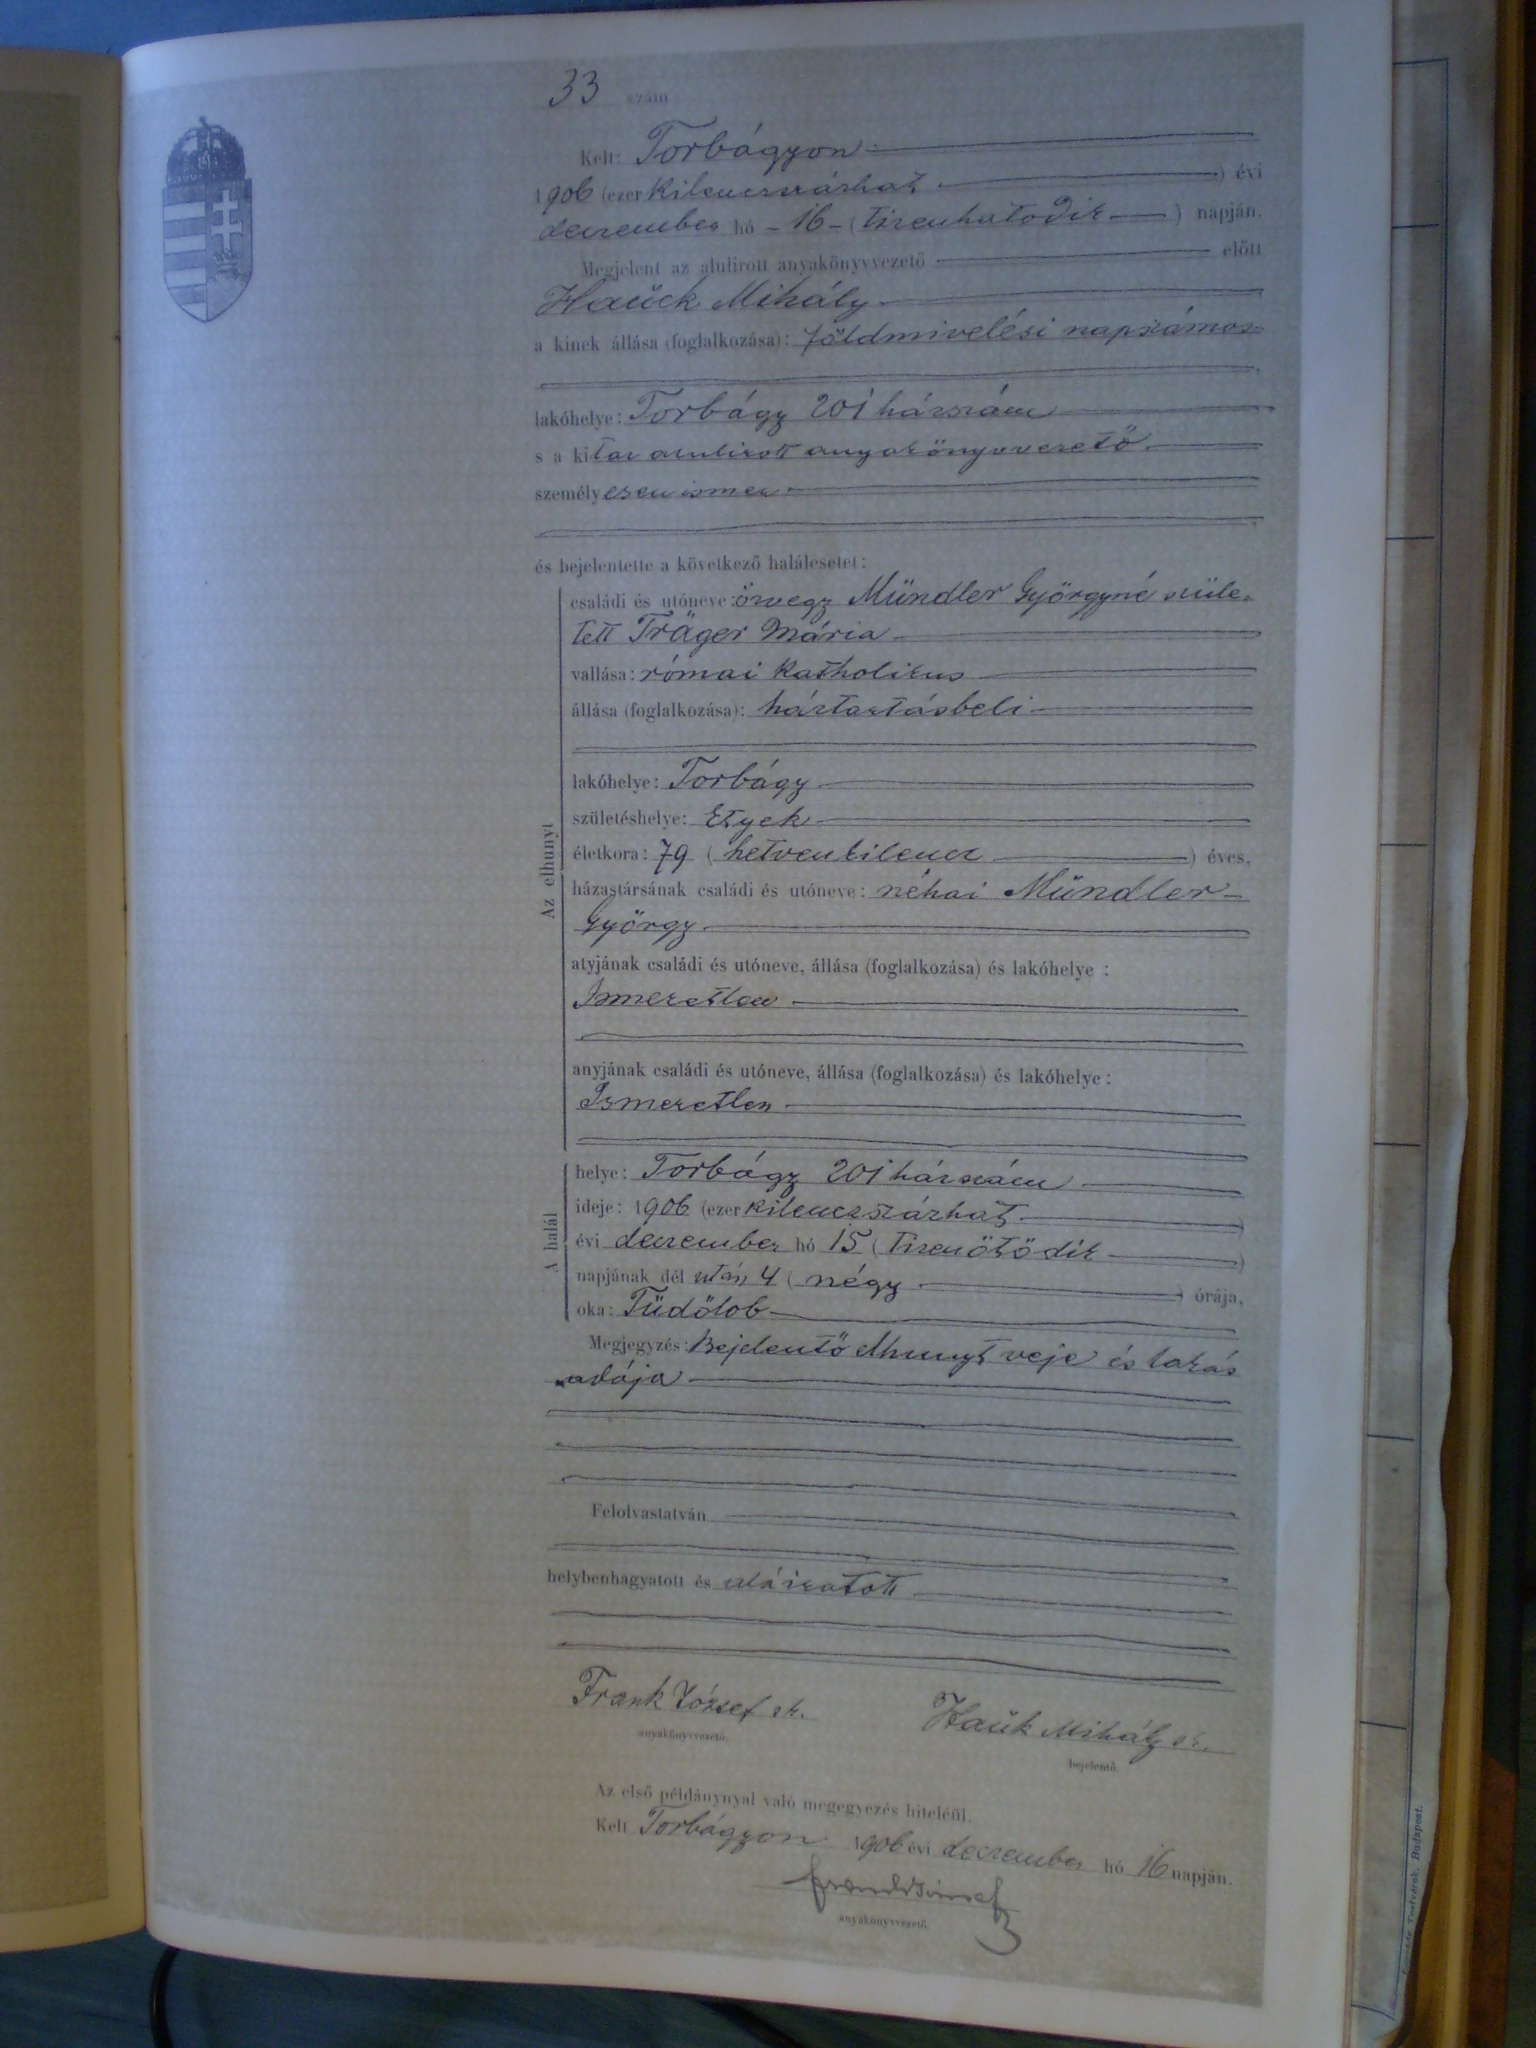 33 szám
Kelt: Torbágyon
1906 (ezer kilenczszázhat) évi
december hó - 16 - (tizenhatodik) napján.
Megjelent az alulirott anyakönyvvezető előtt
Hauck Mihály
a kinek állása (foglalkozása): földmivelési napszámos
lakóhelye: Torbágy 201 házszám
s a kit az alulirott anyakönyvvezető
személyesen ismer
és bejelentette a következő halálesetet:
Az elhunyt
családi és utóneve: özvegy Mündler Györgyné szüle-
tett Träger Mária
vallása: római katholikus
állása (foglalkozása): háztartásbeli
lakóhelye: Torbágy
születéshelye: Etyek
életkora: 79 (hetvenkilencz) éves,
házastársának családi és utóneve: néhai Mündler
György
atyjának családi és utóneve, állása (foglalkozása) és lakóhelye :
Ismeretlen
anyjának családi és utóneve, állása (foglalkozása) és lakóhelye :
Ismeretlen
A halál
helye: Torbágy 201 házszám
ideje: 1906 (ezer kilenczszázhat)
évi december hó 15 (tizenötödik)
napjának dél után 4 (négy) órája,
oka: Tüdőlob
Megjegyzés: Bejelentő elhunyt veje és lakás
adója
Felolvastatván
helybenhagyatott és aláiratott
Frank József sk.
anyakönyvvezető.
Hauk Mihály sk.
bejelentő.
Az első példánynyal való megegyezés hiteléül.
Kelt Torbágyon 1906 évi december hó 16 napján.
Frank József
anyakönyvvezető.
Budapest.